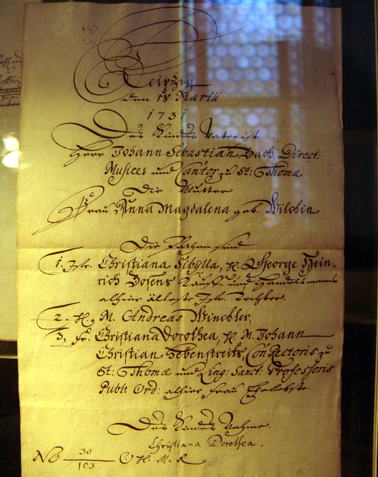 Leipzig
den 18 Martii
1731
Des Kindes Vater ist
Herr Johann Sebastian Bach, Direct.
Musices und Cantor zu St: Thomæ
Die Mutter
Frau Anna Magdalena geb. Wilckin
Die Pathen sind
1. Jgfr. Christiana Sibylla, H. George Hein-
rich Bosens Kauf- und Handelsmanns
alhier älteste Jgfr. Tochter.
2. H. M. Andreas Winckler,
3. Fr. Christiana Dorothea, H. M. Johann
Christian Hebenstreits, Conrectoris zu
St: Thomæ und Ling: Sanct: Professoris
Publ: Ord: alhier Frau Eheliebste.
Des Kindes Nahme.
Christiana Dorothea.
NB 30
103 H. M. R